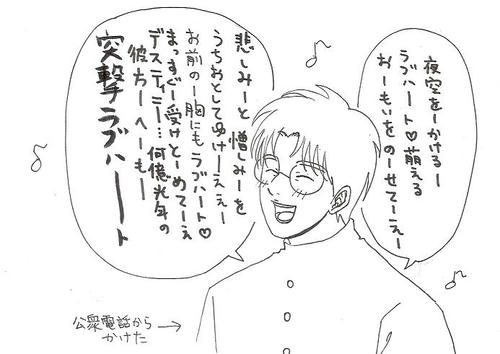 夜空をーかけるー
ラブハート♡萌える
おーもいをのーせてーえぇー
悲しみーと憎しみーを
うちおとしてゆけーえぇー
お前のー胸にもラブハート♡
まっすぐー受けとーめてーえぇ
デスティニー…何億光年の
彼方ーへーもー
突撃ラブハート
公衆電話から
かけた→